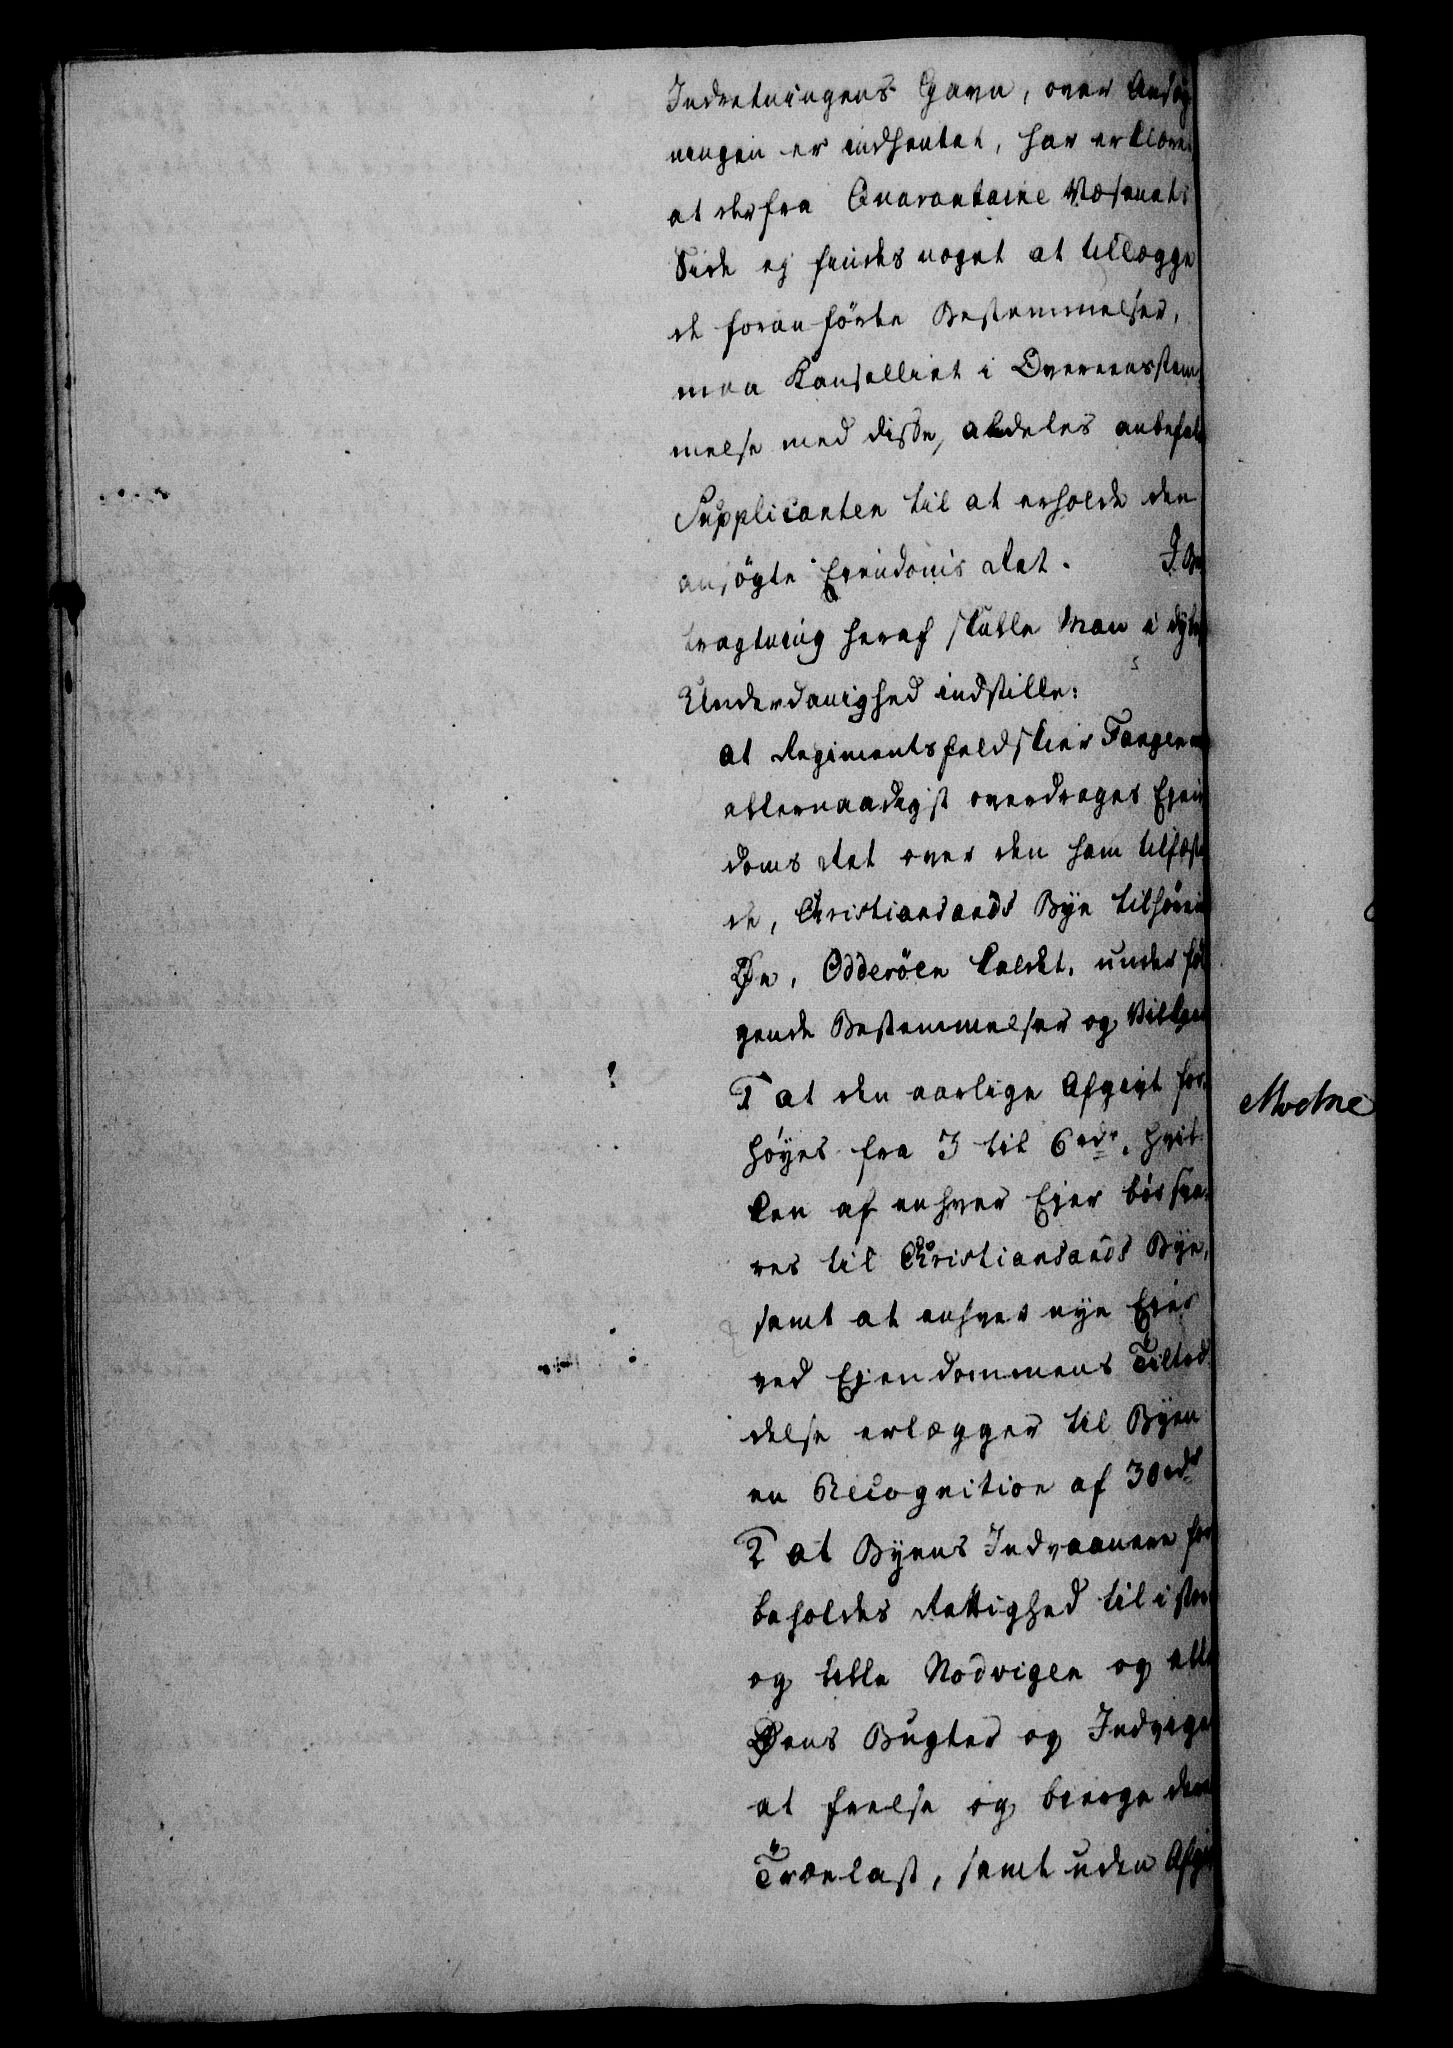 Indretningens Gavn, over Ansøg-
ningen er indhentet, har erklæret
at der fra Quarantaine Væsenets
Side ej findes noget at tillægge
de foranførte Bestemmelser,
maa Kancelliet i Overeensstem
melse med disse, aldeles anbefale
Supplicanten til at erholde den
ansøgte Ejendoms Ret. I Be
tragtning heraf skulle Man i dybe
Underdanighed indstille:
at Regimentsfeldskier
allernaadigst overdrages Ejen
doms Ret over den ham tilfæste
de, Christiansands Bye tilhørende
Øe, Odderöen kaldet, under føl
gende Bestemmelser og Vilkaar
1 at den aarlige Afgivt for
høyes fra 3 til 6 rdr, hvil
ken af enhver Ejer bør sva
res til Christiansands Bye,
samt at enhver nye Ejer
ved Ejendommens Tiltræ
delse erlægger til Byen
en Recognition af 30 rdr
2 at Byens Indvaanere for
beholdes Rettighed til i store
og lille Nodvigen og alle
Øens Bugter og Indvige
at frelse og bierge deres
Trælast, samt uden Afgivt